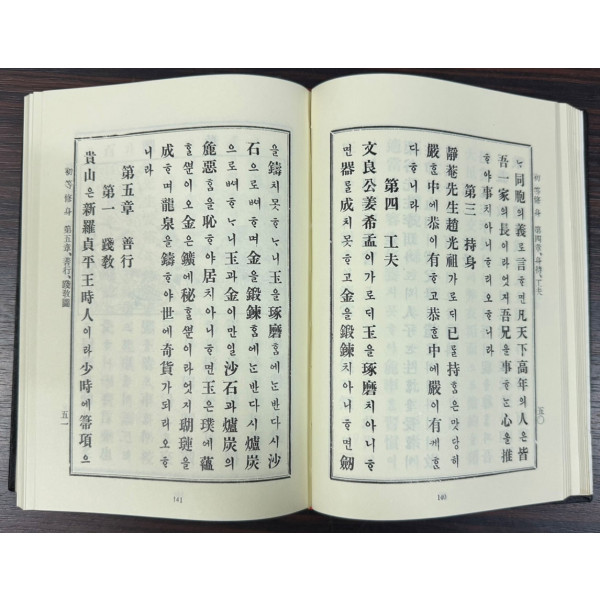 ᄂᆞᆫ同胞의義로言ᄒᆞ면凡天下高年의人은皆
吾一家의長이라엇지吾兄을事ᄒᆞᄂᆞᆫ心을推
ᄒᆞ야事치아니ᄒᆞ리오ᄒᆞ니라
第三 持身
靜菴先生趙光祖가로ᄃᆡ己를持ᄒᆞᆷ은맛당히
嚴ᄒᆞᆫ中에恭이有ᄒᆞ고恭ᄒᆞᆫ中에嚴이有케ᄒᆞᆯ지
다ᄒᆞ니라
第四 工夫
文良公姜希孟이가로ᄃᆡ玉을琢磨치아니ᄒᆞ
면器를成치못ᄒᆞ고金을鍛鍊치아니ᄒᆞ면劒
初等修身 第四章、身持、工夫
五〇
140
을鑄치못ᄒᆞᄂᆞ니玉을琢磨ᄒᆞᆷ에ᄂᆞᆫ반다시沙
石으로ᄡᅥᄒᆞ며金을鍛鍊ᄒᆞᆷ에ᄂᆞᆫ반다시爐炭
으로ᄡᅥᄒᆞᄂᆞ니玉과金이만일沙石과爐炭의
麁惡ᄒᆞᆷ을恥ᄒᆞ야居치아니ᄒᆞ면玉은璞에蘊
ᄒᆞᆯᄲᅮᆫ이오金은鑛에秘ᄒᆞᆯᄲᅮᆫ이라엇지瑚璉을
成ᄒᆞ며龍泉을鑄ᄒᆞ야世에奇貨가되리오ᄒᆞ
니라
第五章 善行
第一 踐敎
貴山은新羅貞平王時人이라少時에箒項으
初等修身 第五章、善行、踐敎
五一
141